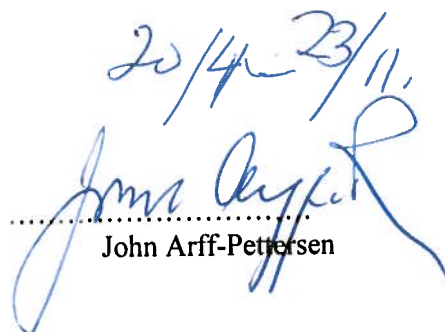 20/4 - 23/11.
John Arff-P
John Arff-Pettersen